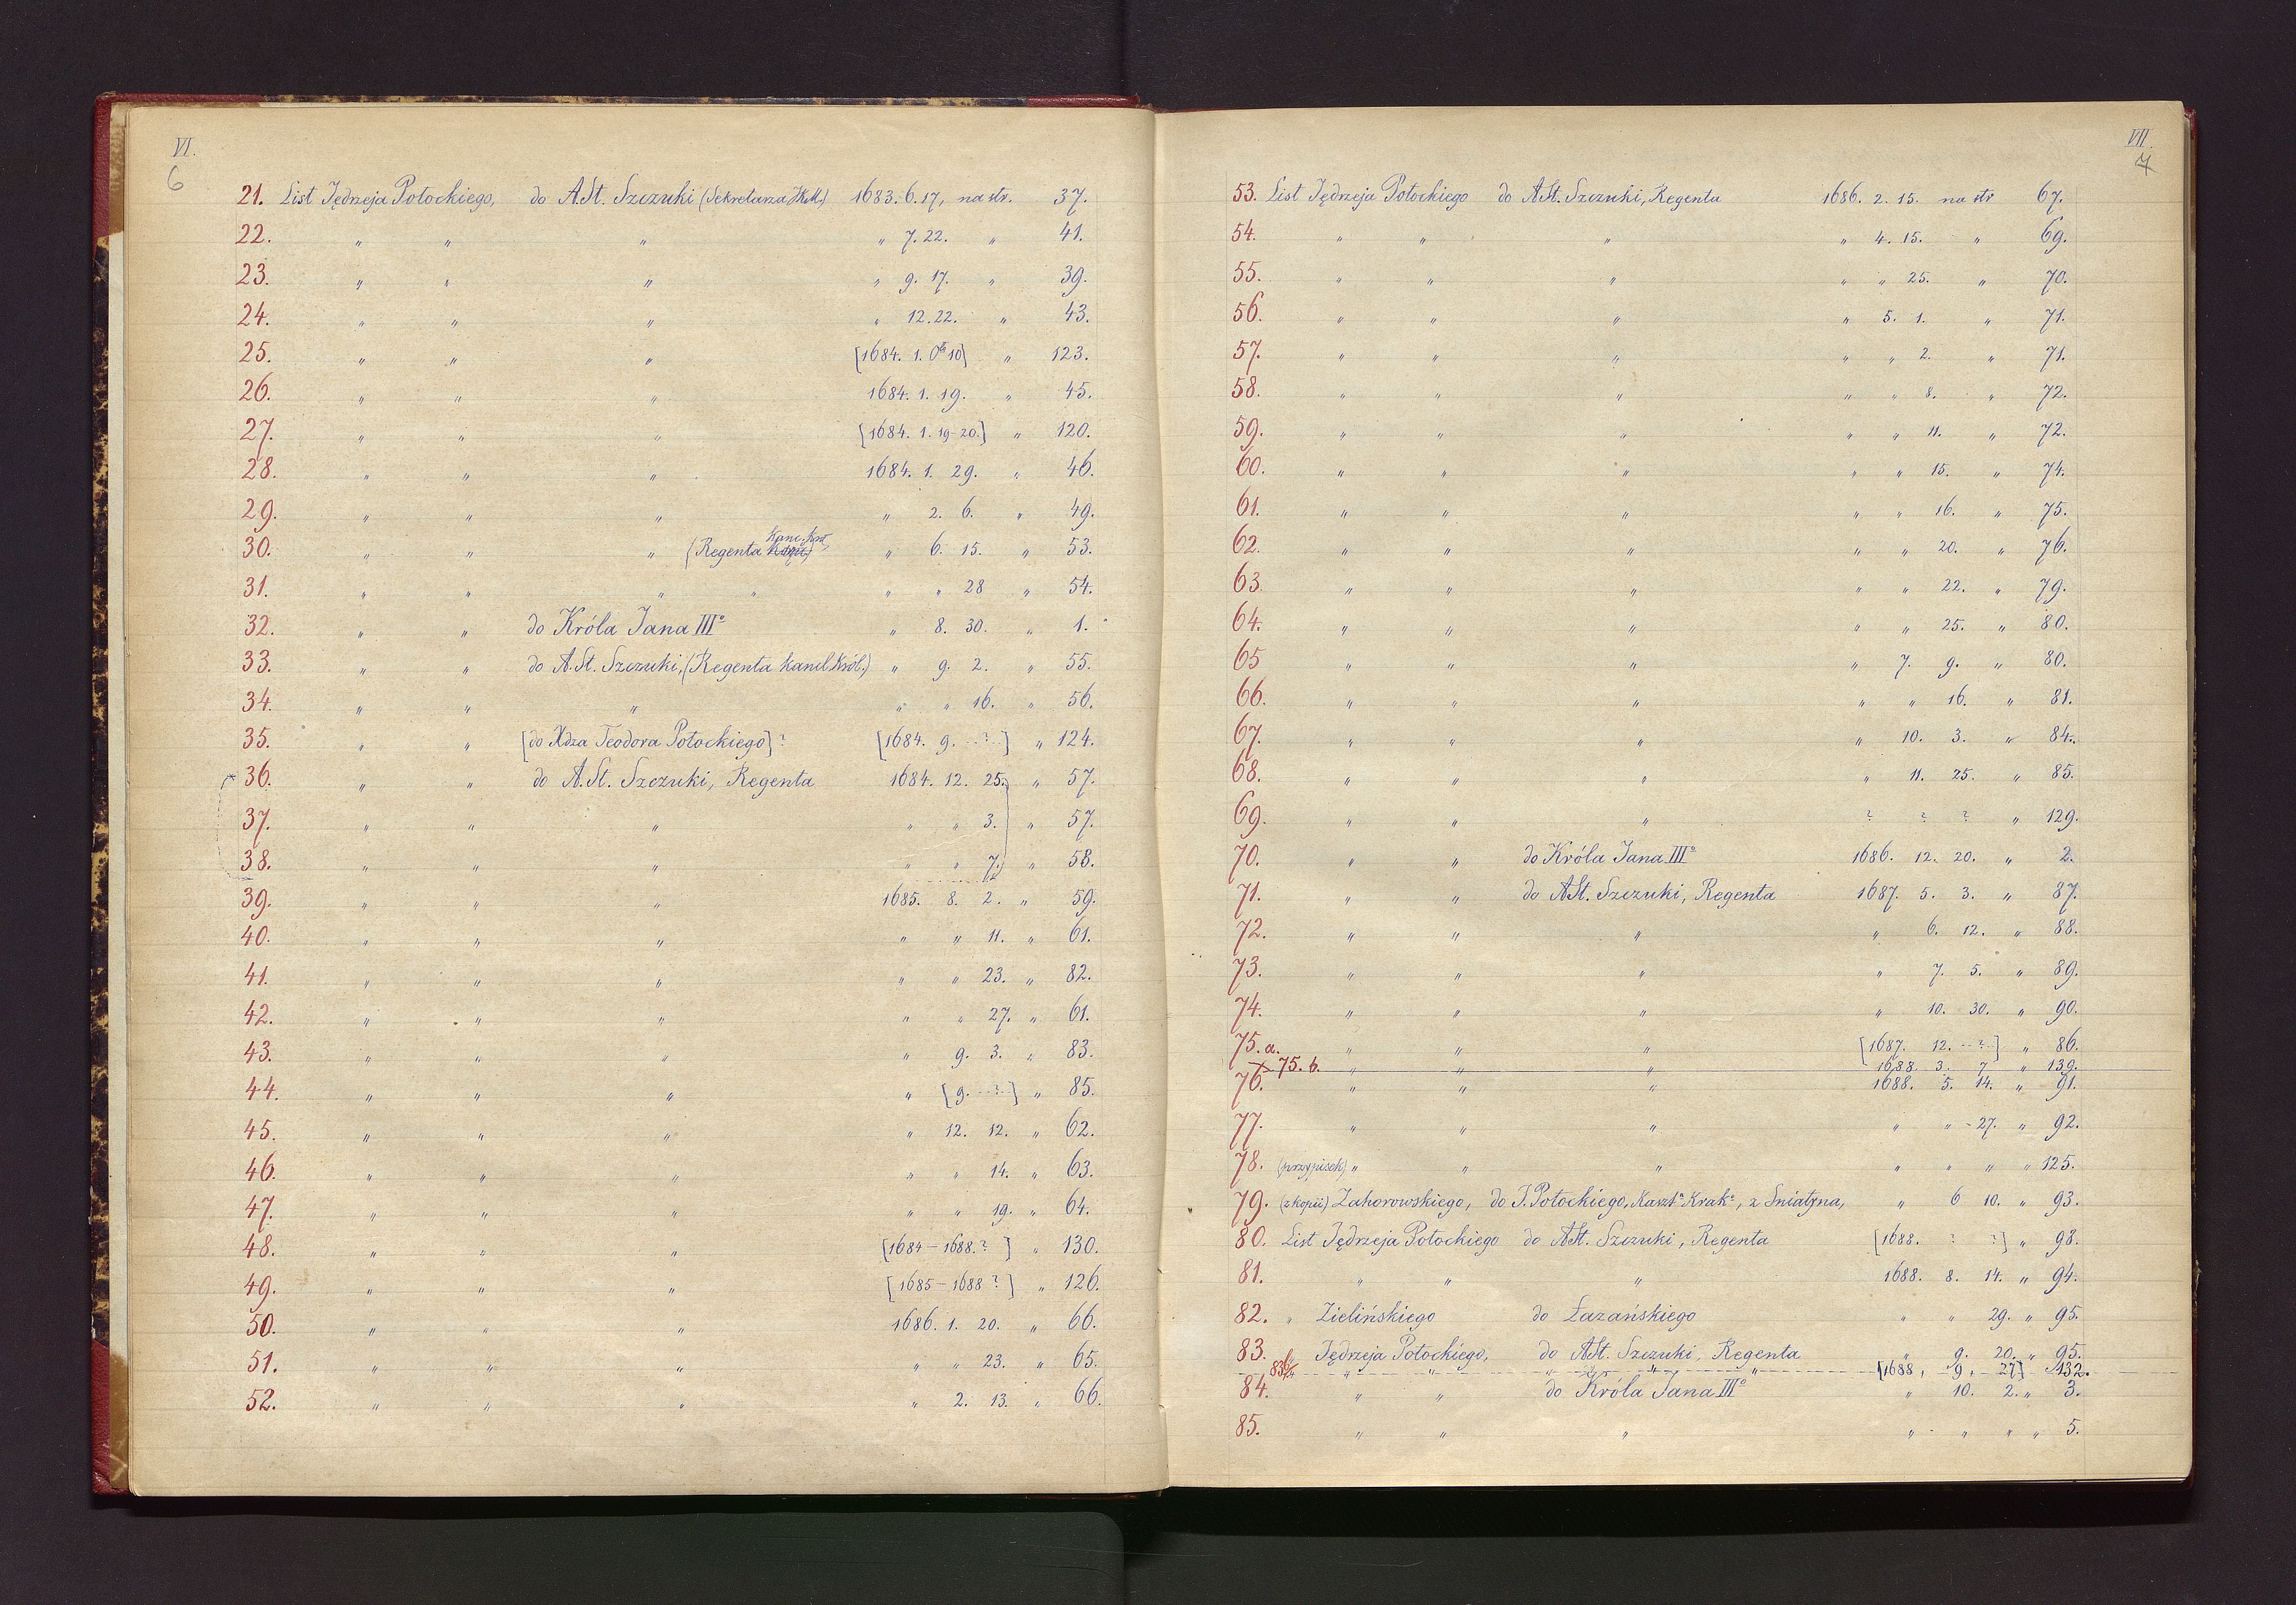 VI.
6
21. List Jędrzeja Potockiego, do A.St. Szczuki (Sekretarza JKM.) 1683. 6. 17, na str. 37.
22. " " " " 7. 22. " 41.
23. " " " " 9. 17. " 39.
24. " " " " 12. 22. " 43.
25. " " " [1684. 1. 10] " 123.
26. " " " 1684. 1. 19. " 45.
27. " " " [1684. 1. 19-20.] " 120.
28. " " " 1684. 1. 29. " 46.
29. " " " " 2. 6. " 49.
30. " " " (Regenta Kanc. Kor. " 6. 15. " 53.
31. " " " " " " 28 " 54.
32. " " do Króla Jana IIIº " 8. 30. " 1.
33. " " do A. St. Szczuki, (Regenta kancl. Król.) " 9. 2. " 55.
34. " " " " " 16. " 56.
35. " " [do Xdza Teodora Potockiego] ? [1684. 9. --?--] " 124.
36. " " do A. St. Szczuki, Regenta 1684. 12. 25. " 57.
37. " " " " " 3. " 57.
38. " " " " " 7. " 58.
39. " " " 1685. 8. 2. " 59.
40. " " " " " 11. " 61.
41. " " " " " 23. " 82.
42. " " " " " 27. " 61.
43. " " " " 9. 3. " 83.
44. " " " " [9. --?--] " 85.
45. " " " " 12. 12. " 62.
46. " " " " " 14. " 63.
47. " " " " " 19. " 64.
48. " " " [1684 – 1688. ? ] " 130.
49. " " " [1685 – 1688 ? ] " 126.
50. " " " 1686. 1. 20. " 66.
51. " " " " " 23. " 65.
52. " " " " 2. 13. " 66.
VII.
7
53. List Jędrzeja Potockiego do A.St. Szczuki, Regenta 1686. 2. 15. na str 67.
54. " " " " 4. 15. " 69.
55. " " " " " 25. " 70.
56. " " " " 5. 1. " 71.
57. " " " " " 2. " 71.
58. " " " " " 8. " 72.
59. " " " " " 11. " 72.
60. " " " " " 15. " 74.
61. " " " " " 16. " 75.
62. " " " " " 20. " 76.
63. " " " " " 22. " 79.
64. " " " " " 25. " 80.
65 " " " " 7. 9. " 80.
66. " " " " " 16. " 81.
67. " " " " 10. 3. " 84.
68. " " " " 11. 25. " 85.
69. " " " ? ? ? " 129.
70. " " do Króla Jana IIIº 1686. 12. 20. " 2.
71. " " do A.St. Szczuki, Regenta 1687. 5. 3. " 87.
72. " " " " 6. 12. " 88.
73. " " " " 7. 5. " 89.
74. " " " " 10. 30. " 90.
75. a. " " " [1687. 12. --?--] " 86.
75. b. " " " 1688. 3. 7 " 139.
76. " " " 1688. 5. 14. " 91.
77. " " " " " 27. " 92.
78. (przypisek) " " " " " " " 125.
79. (z kopii) Zahorowskiego, do J. Potockiego, Kaszt. Krak., z Sniatyna, " 6 10. " 93.
80. List Jędrzeja Potockiego do A.St. Szczuki, Regenta [1688. ? ?] " 98.
81. " " " 1688. 8. 14. " 94.
82. " Zielińskiego do Łazańskiego " " 29. " 95.
83. " Jędrzeja Potockiego, do A.St. Szczuki, Regenta " 9. 20. " 95.
" " " " " [1688, 9, 27] " 132.
84. " " do Króla Jana IIIº " 10. 2. " 3.
85. " " " " " " " 5.